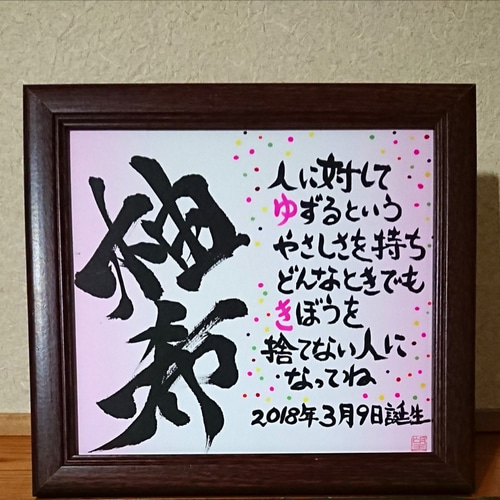 柚希
人に対して
ゆずるという
やさしさを持ち
どんなときでも
きぼうを
捨てない人に
なってね
2018年3月9日誕生